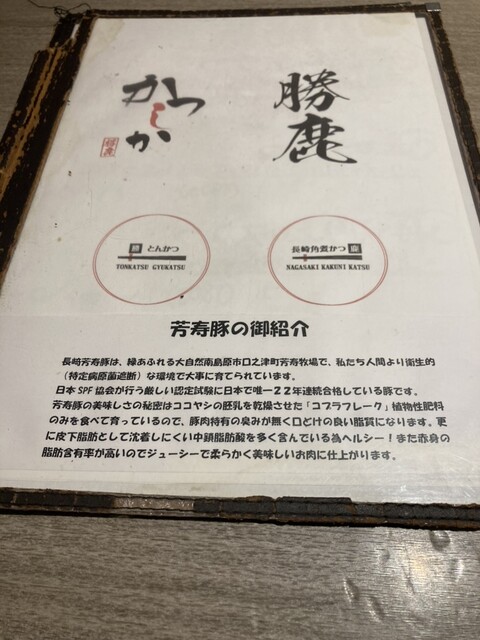 勝鹿
かつしか
勝 とんかつ
TONKATSU GYUKATSU
長崎角煮かつ 鹿
NAGASAKI KAKUNI KATSU
芳寿豚の御紹介
長崎芳寿豚は、緑あふれる大自然南島原市口之津町芳寿牧場で、私たち人間より衛生的
（特定病原菌遮断）な環境で大事に育てられています。
日本SPF協会が行う厳しい認定試験に日本で唯一22年連続合格している豚です。
芳寿豚の美味しさの秘密はココヤシの胚乳を乾燥させた「コプラフレーク」植物性肥料
のみを食べて育っているので、豚肉特有の臭みが無く口どけの良い脂質になります。更
に皮下脂肪として沈着しにくい中鎖脂肪酸を多く含んでいる為ヘルシー！また赤身の
脂肪含有率が高いのでジューシーで柔らかく美味しいお肉に仕上がります。